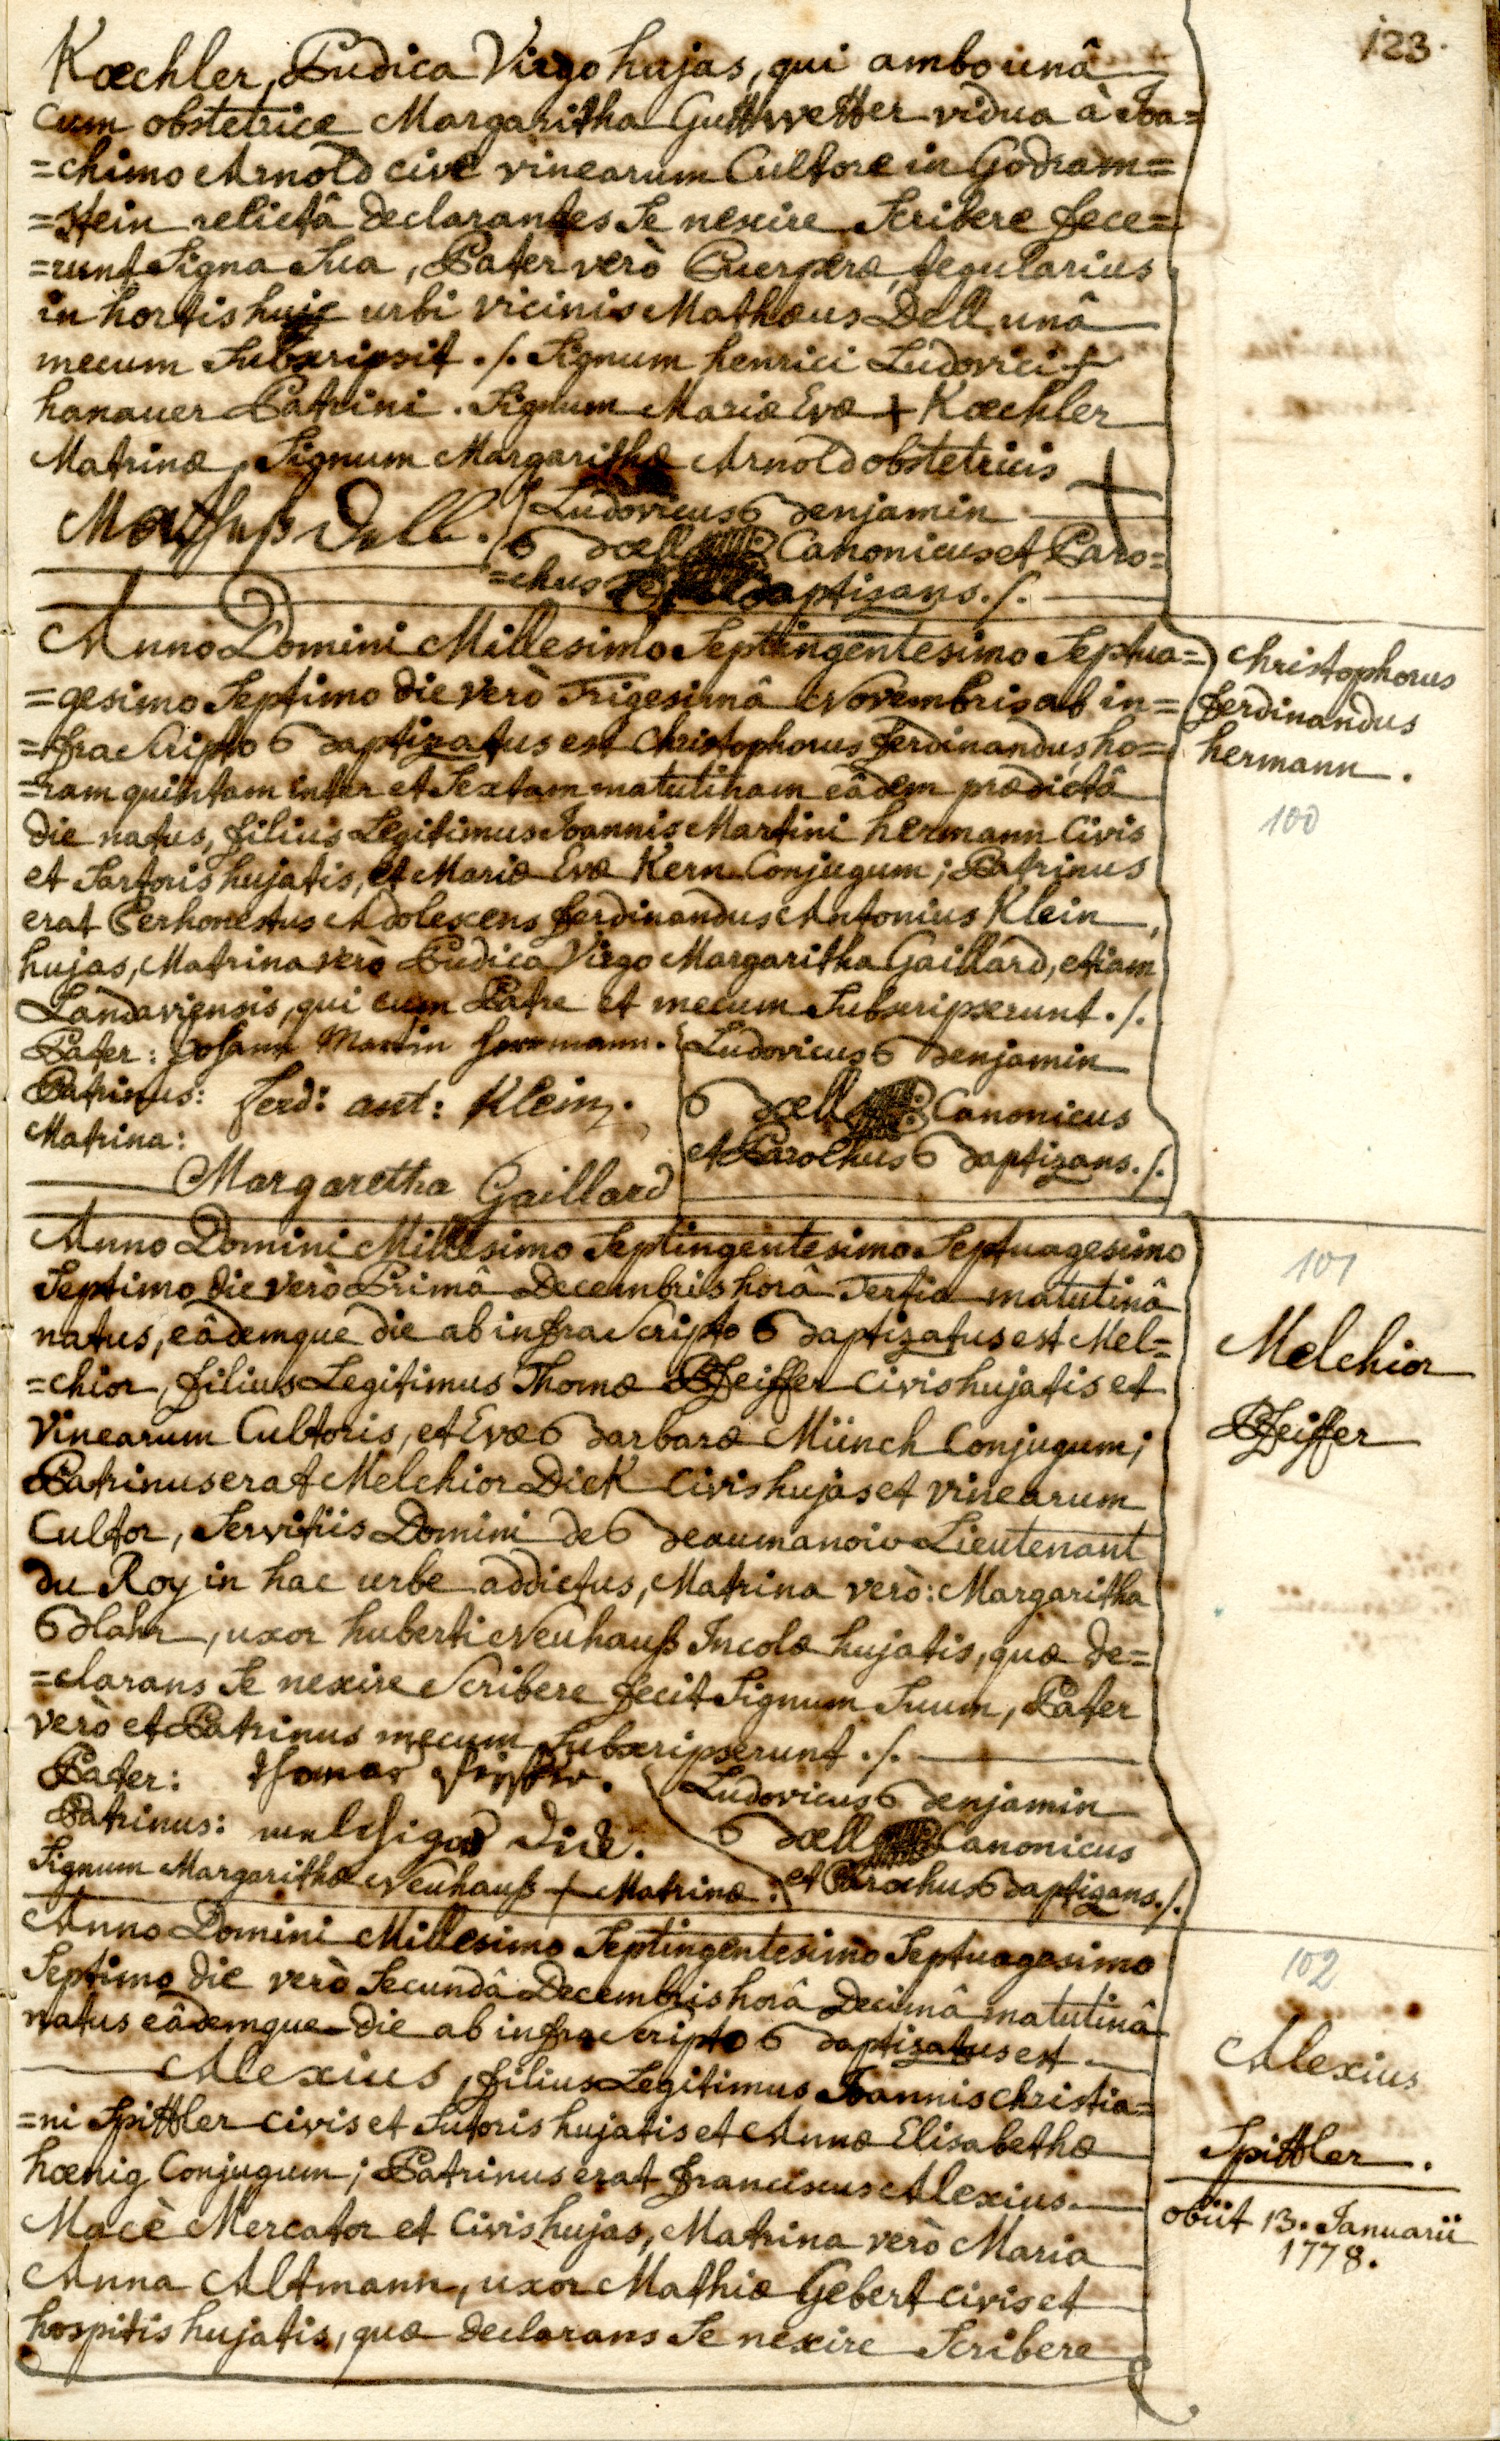 123.
Kœchler, Pudica Virgo hujas, qui ambo unâ
cum obstetrice Margaritha Guttwetter vidua à Joa=
=chimo Arnold cive vinearum Cultore in Godram=
=stein relictâ declarantes se nescire scribere fece=
=runt signa sua, Pater verò Puerperæ, tegularius
in hortis huic urbi vicinis Mathæus Dell unâ
mecum subscripsit ./. Signum henrici Ludovici +
hanauer Patrini. Signum Mariæ Evæ + Kœchler
Matrinæ, Signum Margarithæ Arnold obstetricis +
Matheß Dell.
Ludovicus Benjamin
Bœll Canonicus et Paro=
=chus Baptizans ./.
Anno Domini Millesimo Septingentesimo Septua=
=gesimo Septimo die verò Trigesimâ Novembris ab in=
=frascripto Baptizatus est Christophorus ferdinandus, ho=
=ram quintam inter et sextam matutinam eâdem prædictâ
die natus, filius Legitimus Joannis Martini hermann Civis
et Sartoris hujatis, et Mariæ Evæ Kern Conjugum; Patrinus
erat Perhonestus Adolescens ferdinandus Antonius Klein,
hujas, Matrina verò Pudica Virgo Margaritha Gaillard, etiam
Landaviensis, qui cum Patre et mecum subscripserunt ./.
Pater: Johann Martin herrmann.
Patrinus: ferd: ant: Klein.
Matrina:
Margaretha Gaillard
Ludovicus Benjamin
Bœll Canonicus
et Parochus Baptizans ./.
christophorus
ferdinandus
hermann.
100
Anno Domini Millesimo Septingentesimo Septuagesimo
Septimo die verò Primâ Decembris horâ Tertia matutinâ
natus, eâdemque die ab infrascripto Baptizatus est Mel=
=chior, filius Legitimus Thomæ Pfeiffer civis hujatis et
Vinearum Cultoris, et Evæ Barbaræ Münch Conjugum;
Patrinus erat Melchior Dick civis hujas et vinearum
Cultor, Servitiis Domini de Beaumanoir Lieutenant
du Roy in hac urbe addictus, Matrina verò: Margaritha
Blahr, uxor huberti Neuhauß Incolæ hujatis, quæ de=
=clarans se nescire scribere fecit signum suum, Pater
verò et Patrinus mecum subscripserunt ./.
Pater: thomas Pfeiffer.
Patrinus: melchior Dick.
Signum Margarithæ Neuhauß + Matrinæ.
Ludovicus Benjamin
Bœll Canonicus
et Parochus Baptizans ./.
101
Melchior
Pfeiffer
Anno Domini Millesimo Septingentesimo Septuagesimo
Septimo die verò Secundâ Decembris horâ Decimâ matutinâ
natus eâdemque die ab infrascripto Baptizatus est
Alexius, filius Legitimus Joannis christia=
=ni Spittler civis et Sutoris hujatis et Annæ Elisabethæ
hœnig Conjugum; Patrinus erat franciscus Alexius
Macè Mercator et Civis hujas, Matrina verò Maria
Anna Altmann, uxor Mathiæ Gebert civis et
hospitis hujatis, quæ declarans se nescire scribere
102
Alexius
Spittler.
obiit 13. Januarii
1778.